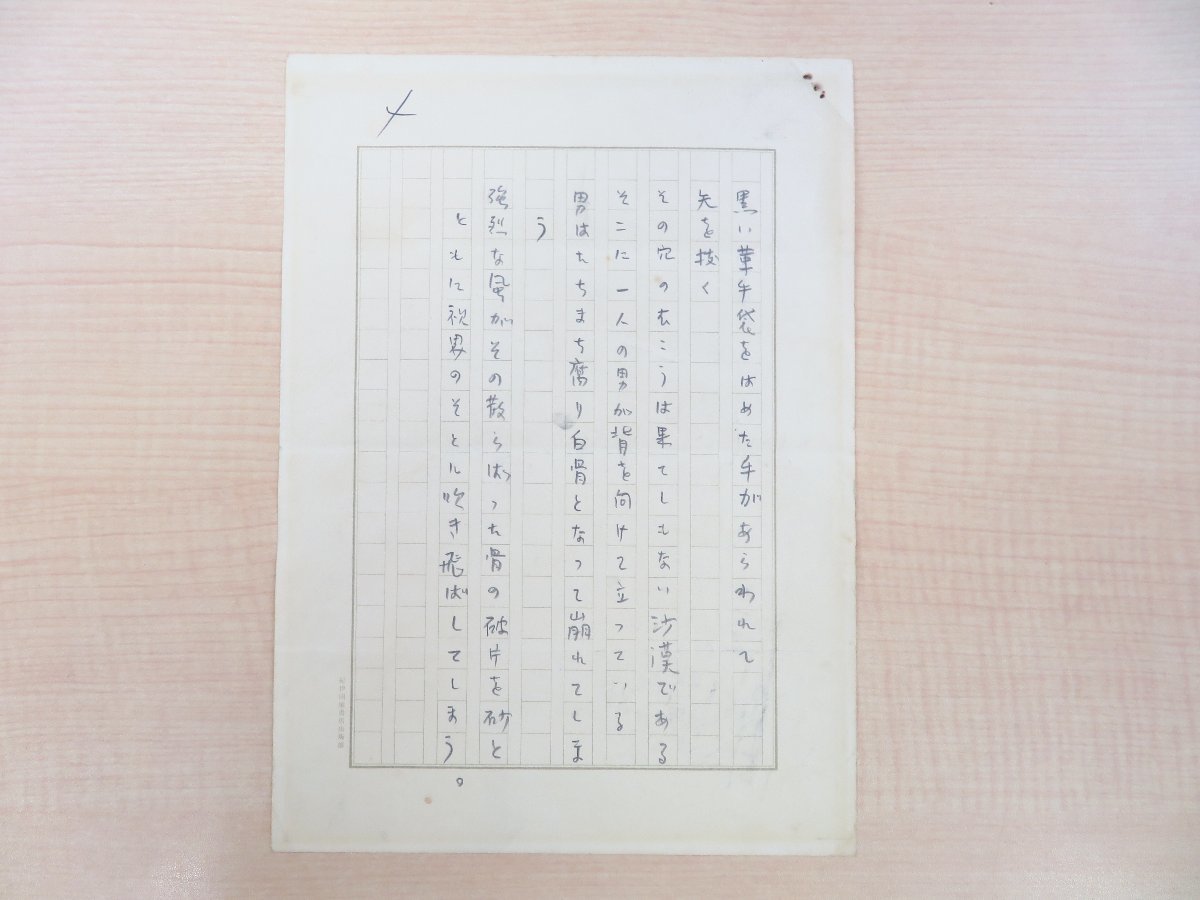 黒い革手袋をはめた手があらわれて
矢を抜く
その穴のむこうは果てしもない沙漠である
そこに一人の男が背を向けて立っている
男はたちまち腐り白骨となって崩れてしま
う
強烈な風がその散らばった骨の破片を砂と
ともに視界のそとに吹き飛ばしてしまう。
紀伊國屋書店出版部